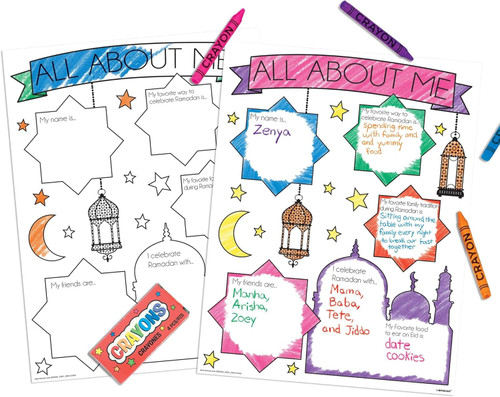 ALL ABOUT ME
My name is...
My favorite way to
celebrate Ramadan is...
My favorite family tradition
during Ramadan is...
My friends are...
I celebrate
Ramadan with...
CRAYONS
CRAYONES
4 PIECES
CRAYON
ALL ABOUT ME
My name is...
Zenya
My favorite way to
celebrate Ramadan is...
spending time
with family and
and yummy
food
My favorite family tradition
during Ramadan is
Sitting around the
table with my
family every night
to break our fast
together
My friends are...
Manha,
Arisha,
Zoey
I celebrate
Ramadan with...
Mama,
Baba,
Tete,
and Jiddo
My Favorite food
to ear on Eid is
date
cookies
CRAYON
CRAYON